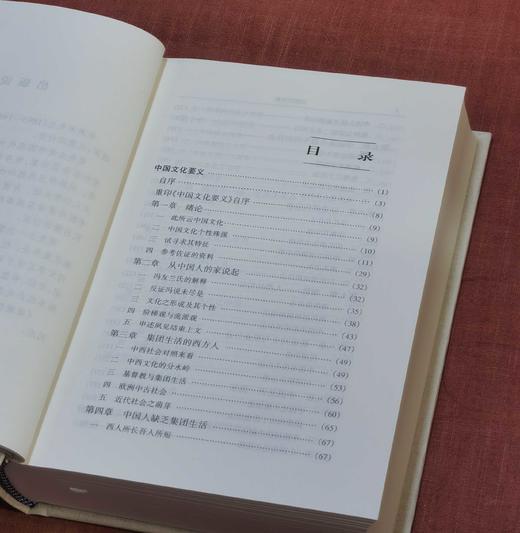 目 录
中国文化要义 ……………… (1)
自序 ……………… (3)
重印《中国文化要义》自序 ……………… (8)
第一章 绪论 ……………… (9)
一 此所云中国文化 ……………… (9)
二 中国文化个性殊强 ……………… (10)
三 试寻求其特征 ……………… (11)
四 参考佐证的资料 ……………… (29)
第二章 从中国人的家说起 ……………… (32)
一 冯友兰氏的解释 ……………… (32)
二 反证冯说未尽是 ……………… (35)
三 文化之形成及其个性 ……………… (38)
四 阶梯观与流派观 ……………… (43)
五 申述夙见结束上文 ……………… (47)
第三章 集团生活的西方人 ……………… (49)
一 中西社会对照来看 ……………… (49)
二 中西文化的分水岭 ……………… (53)
三 基督教与集团生活 ……………… (56)
四 欧洲中古社会 ……………… (60)
五 近代社会之萌芽 ……………… (65)
第四章 中国人缺乏集团生活 ……………… (67)
一 西人所长吾人所短 ……………… (67)